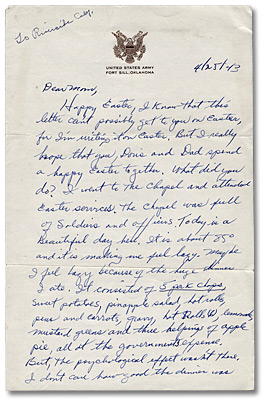 To Riverside Calif.
UNITED STATES ARMY
FORT SILL, OKLAHOMA
4/25/43
Dear Mom,
Happy Easter, I know that this
letter cant possibly get to you on Easter,
for Im writing it on Easter. But I really
hope that you, Doris and Dad spend
a happy Easter together. What did you
do? I went to the Chapel and attended
Easter services. The Chapel was full
of Soldiers and officers. Today is a
Beautiful day here. It is about 85°
and it is making me feel lazy. Maybe
I feel lazy because of the huge dinner
I ate. It consisted of 5 pork chops,
sweet potatoes, pineapple salad, hot rolls,
peas and carrots, gravy, hot lemonade,
mustard greens and three helpings of apple
pie, all at the governments expense.
But, the psychological effect wasnt there.
I dont care how good the dinner was